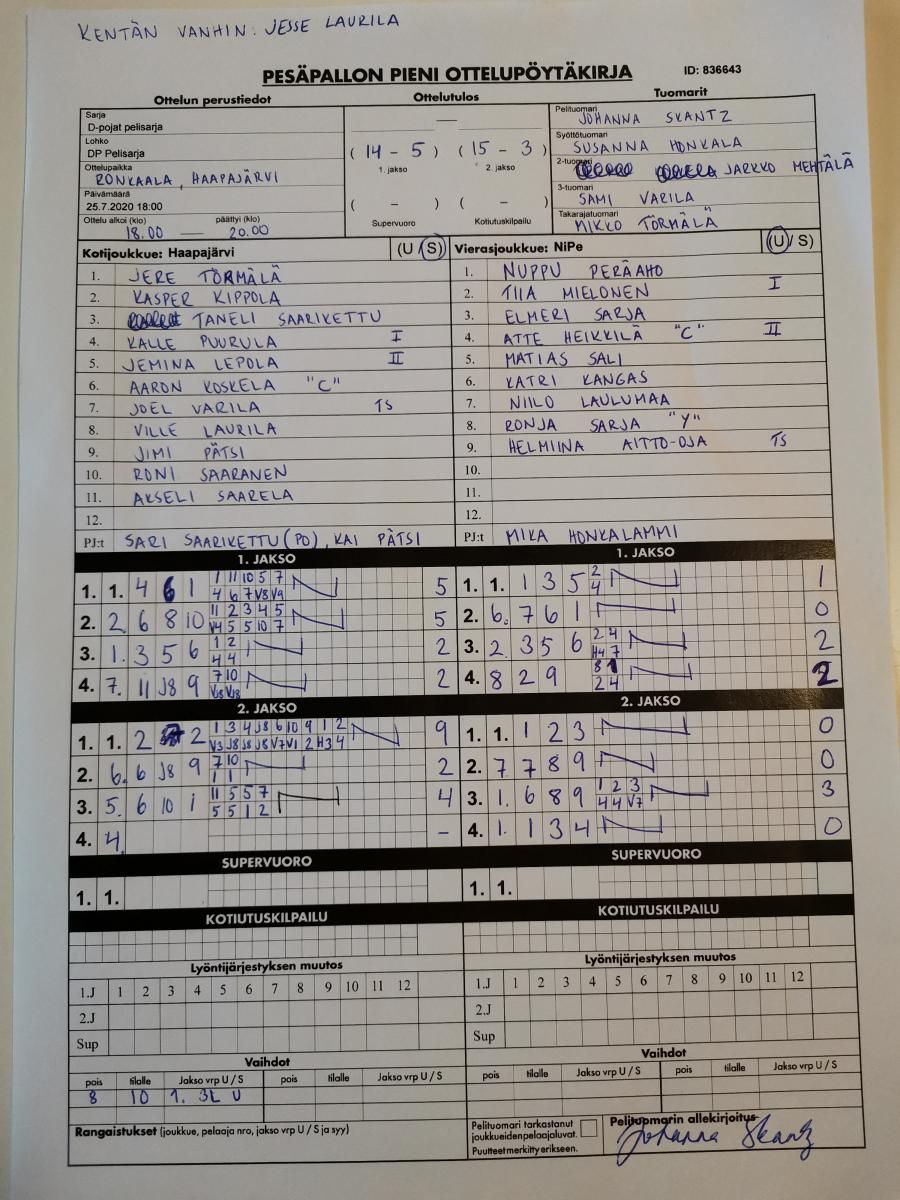 KENTÄN VANHIN: JESSE LAURILA
PESÄPALLON PIENI OTTELUPÖYTÄKIRJA ID: 836643
Ottelun perustiedot Ottelutulos Tuomarit
Sarja
D-pojat pelisarja
Lohko
DP Pelisarja
Ottelupaikka
RONKAALA, HAAPAJÄRVI
Päivämäärä
25.7.2020 18:00
Ottelu alkoi (klo) päättyi (klo)
18.00 — 20.00
—
(14 - 5) (15 - 3)
1. jakso 2. jakso
( - ) ( - )
Supervuoro Kotiutuskilpailu
Pelituomari
JOHANNA SKANTZ
Syöttötuomari
SUSANNA HONKALA
2-tuomari
JARKKO MEHTÄLÄ
3-tuomari
SAMI VARILA
Takarajatuomari
MIKKO TÖRMÄLÄ
Kotijoukkue: Haapajärvi (U/S)
1. JERE TÖRMÄLÄ
2. KASPER KIPPOLA
3. TANELI SAARIKETTU
4. KALLE PUURULA I
5. JEMINA LEPOLA II
6. AARON KOSKELA "C"
7. JOEL VARILA TS
8. VILLE LAURILA
9. JIMI PÄTSI
10. RONI SAARANEN
11. AKSELI SAARELA
12.
PJ:t SARI SAARIKETTU (PO), KAI PÄTSI
Vierasjoukkue: NiPe (U/S)
1. NUPPU PERÄAHO
2. TIIA MIELONEN I
3. ELMERI SARJA
4. ATTE HEIKKILÄ "C" II
5. MATIAS SALI
6. KATRI KANGAS
7. NIILO LAULUMAA
8. RONJA SARJA "Y"
9. HELMIINA AITTO-OJA TS
10.
11.
12.
PJ:t MIKA HONKALAMMI
1. JAKSO
1. 1. 4 6 1 1 11 10 5 7 5
4 6 7 V8 V9
2. 2 6 8 10 11 2 3 4 5 5
V4 5 5 10 7
3. 1. 3 5 6 1 2 2
4 4
4. 7. 11 J8 9 7 10 2
2. JAKSO
1. 1. 2 2 1 3 4 J8 6 10 9 1 2 9
V3 J8 J8 J8 V7 V1 2 H3 4
2. 6. 6 J8 9 7 10 2
1 1
3. 5. 6 10 1 11 5 5 7 4
5 5 1 2
4. 4. -
SUPERVUORO
1. 1.
KOTIUTUSKILPAILU
1. JAKSO
1. 1. 1 3 5 2 1
4
2. 6. 7 6 1 0
3. 2. 3 5 6 2 4 2
H4 7
4. 8 2 9 8 1 2
2 4
2. JAKSO
1. 1. 1 2 3 0
2. 7 7 8 9 0
3. 1. 6 8 9 1 2 3 3
4 4 V7
4. 1. 1 3 4 0
SUPERVUORO
1. 1.
KOTIUTUSKILPAILU
Lyöntijärjestyksen muutos
1.J 1 2 3 4 5 6 7 8 9 10 11 12
2.J
Sup
Lyöntijärjestyksen muutos
1.J 1 2 3 4 5 6 7 8 9 10 11 12
2.J
Sup
Vaihdot
pois tilalle Jakso vrp U / S pois tilalle Jakso vrp U / S
8 10 1. 3L U
Vaihdot
pois tilalle Jakso vrp U / S pois tilalle Jakso vrp U / S
Rangaistukset (joukkue, pelaaja nro, jakso vrp U / S ja syy)
Pelituomari tarkastanut
joukkueidenpelaajaluvat.
Puutteet merkitty erikseen.
Pelituomarin allekirjoitus
Johanna Skantz